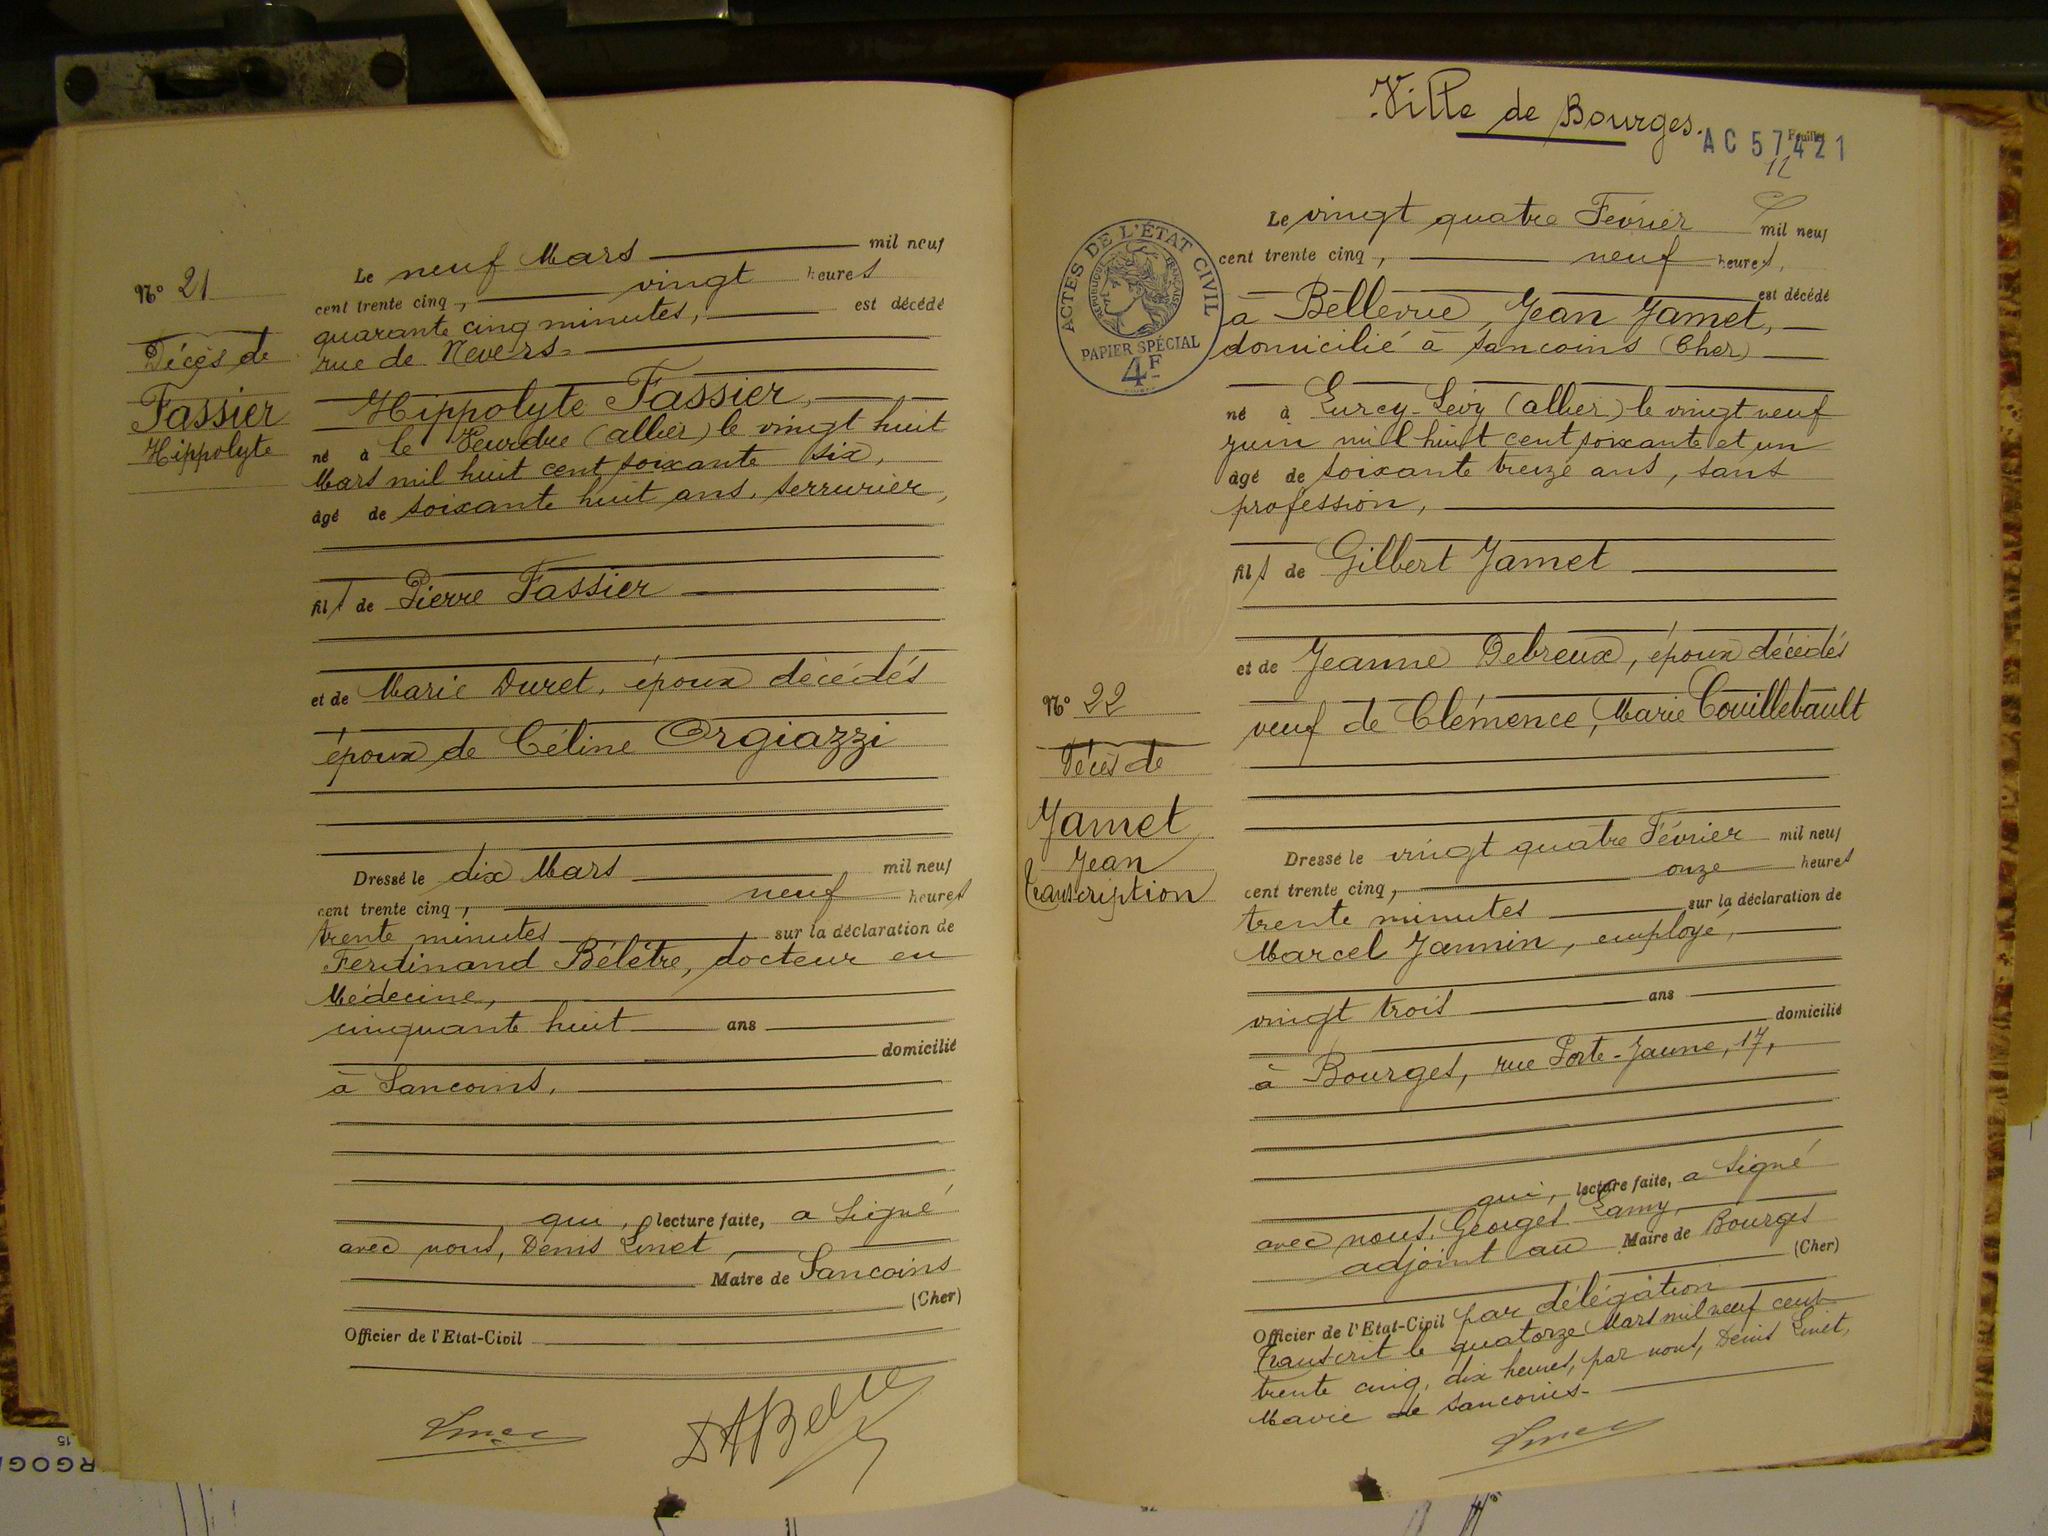 N° 21
Décès de
Fassier
Hippolyte
Le neuf Mars mil neuf
cent trente cinq, vingt heures
quarante cinq minutes, est décédé
rue de Nevers
Hippolyte Fassier,
né à le Veurdre (allier) le vingt huit
Mars mil huit cent soixante six,
âgé de soixante huit ans, serrurier,
fils de Pierre Fassier
et de Marie Duret, époux décédés
époux de Céline Orgiazzi
Dressé le dix Mars mil neuf
cent trente cinq, neuf heures
trente minutes sur la déclaration de
Ferdinand Bélêtre, docteur en
Médecine,
cinquante huit ans
domicilié
à Sancoins,
qui, lecture faite, a signé
avec nous, Denis Linet
Maire de Sancoins
(Cher)
Officier de l'Etat-Civil
Ville de Bourges.
AC 57421
Feuille
12
ACTES DE L'ÉTAT CIVIL
RÉPUBLIQUE FRANÇAISE
PAPIER SPÉCIAL
4F
Le vingt quatre Février mil neuf
cent trente cinq, neuf heures,
est décédé
à Bellevue, Jean Jamet,
domicilié à Sancoins (Cher)
né à Lurcy-Lévy (allier) le vingt neuf
juin mil huit cent soixante et un
âgé de soixante treize ans, sans
profession,
fils de Gilbert Jamet
et de Jeanne Debreux, époux décédés
veuf de Clémence, Marie Couillebault
N° 22
Décès de
Jamet
Jean
Transcription
Dressé le vingt quatre Février mil neuf
cent trente cinq, onze heures
trente minutes sur la déclaration de
Marcel Jannin, employé,
vingt trois ans
domicilié
à Bourges, rue Porte-Jaune, 17,
qui, lecture faite, a signé
avec nous, Georges Lamy,
adjoint au Maire de Bourges
(Cher)
Officier de l'Etat-Civil par délégation
Transcrit le quatorze Mars mil neuf cent
trente cinq, dix heures, par nous, Denis Linet,
Maire de Sancoins.